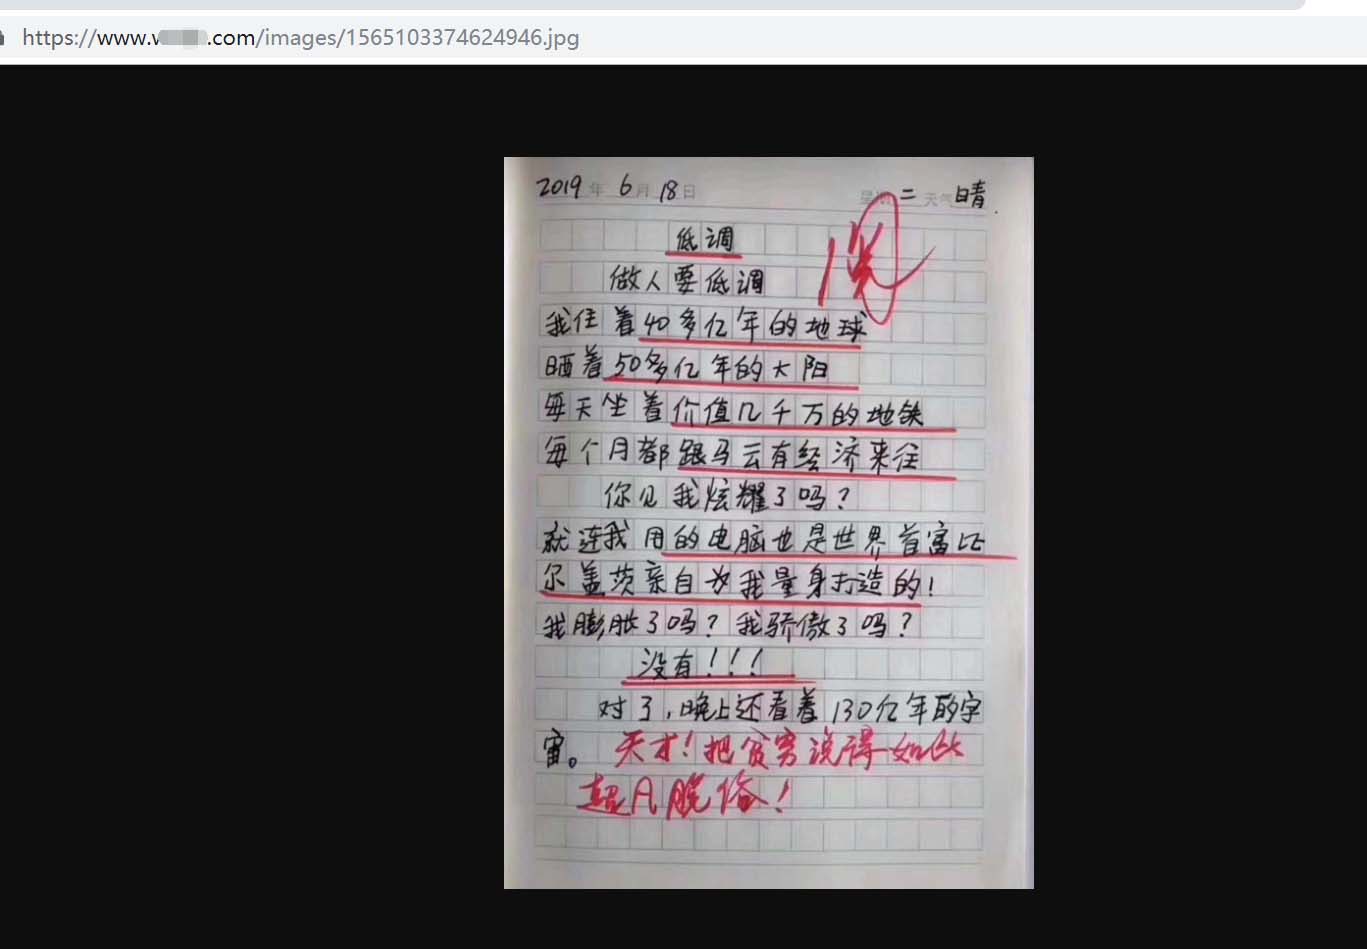 https://www.w.com/images/1565103374624946.jpg
2019年 6月 18日 星期二 天气 晴.
低调
做人要低调
我住着40多亿年的地球
晒着50多亿年的大阳
每天坐着价值几千万的地铁
每个月都跟马云有经济来往
你见我炫耀了吗?
就连我用的电脑也是世界首富比
尔盖茨亲自为我量身打造的!
我膨胀了吗?我骄傲了吗?
没有!!!
对了,晚上还看着130亿年的宇
宙。天才!把贫穷说得如此
超凡脱俗!